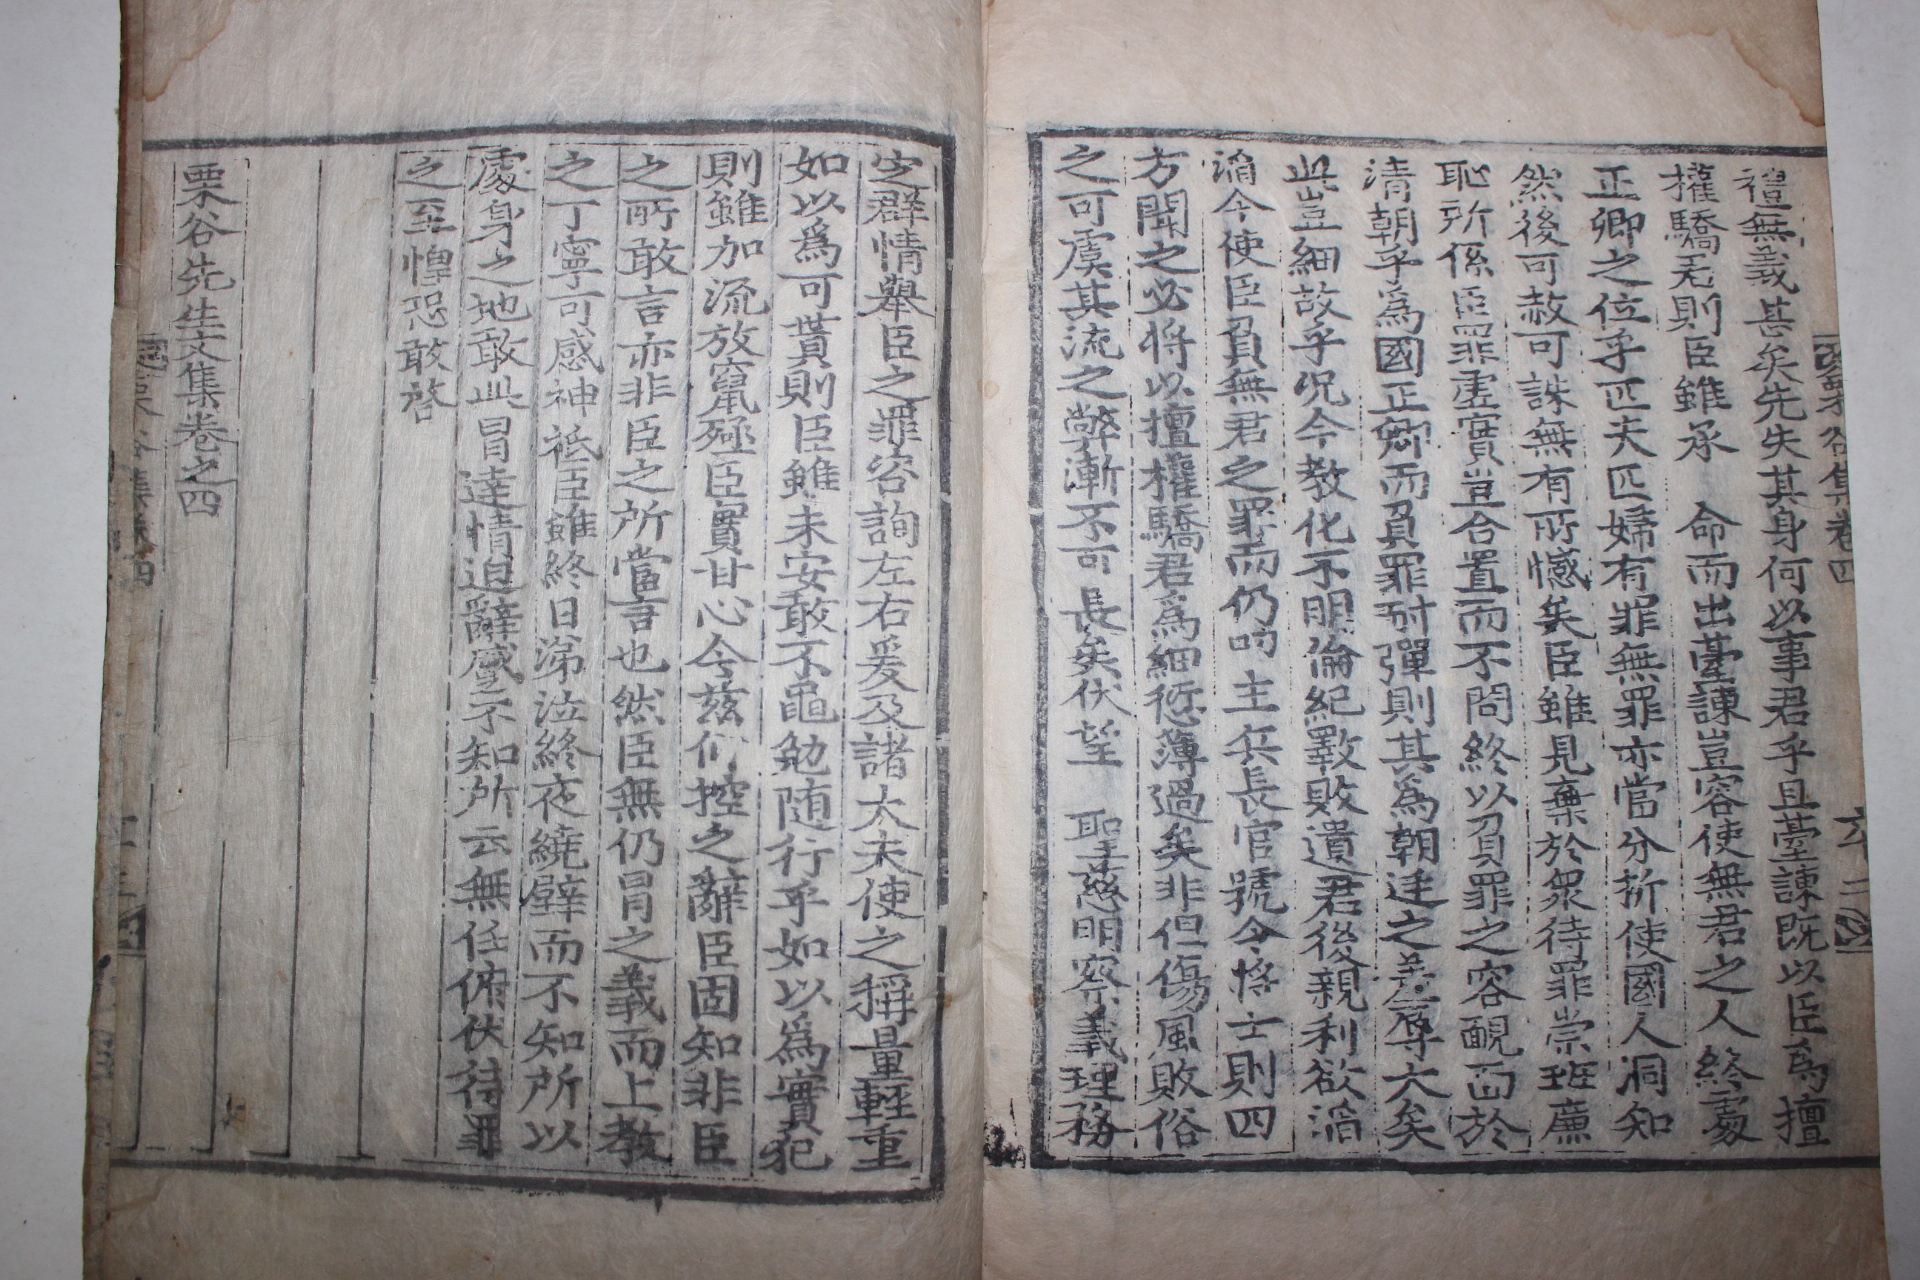 禮無義甚矣先失其身何以事君乎且臺諫旣以臣爲擅
權驕君則臣雖承 命而出臺諫豈容使無君之人終處
正卿之位乎匹夫匹婦有罪無罪亦當分折使國人洞知
然後可赦可誅無有所憾矣臣雖見棄於衆待罪崇班廉
恥所係臣罪虛實豈合置而不問終以負罪之容靦面於
淸朝乎爲國正卿而負罪耐彈則其爲朝廷之羞辱大矣
此豈細故乎况今敎化不明倫紀斁敗遺君後親利欲滔
滔今使臣負無君之罪而仍叨主兵長官號令將士則四
方聞之必將以擅權驕君爲細愆薄過矣非但傷風敗俗
之可虞其流之弊漸不可長矣伏望 聖慈明察義理務
定群情擧臣之罪容詢左右爰及諸大夫使之稱量輕重
如以爲可貰則臣雖未安敢不黽勉隨行乎如以爲實犯
則雖加流放竄殛臣實甘心今玆仰控之辭臣固知非臣
之所敢言亦非臣之所當言也然臣無仍冒之義而上敎
之丁寧可感神祗臣雖終日涕泣終夜繞壁而不知所以
處身之地敢此冒達情迫辭蹙不知所云無任俯伏待罪
之至惶恐敢啓
栗谷先生文集卷之四
栗谷集卷四